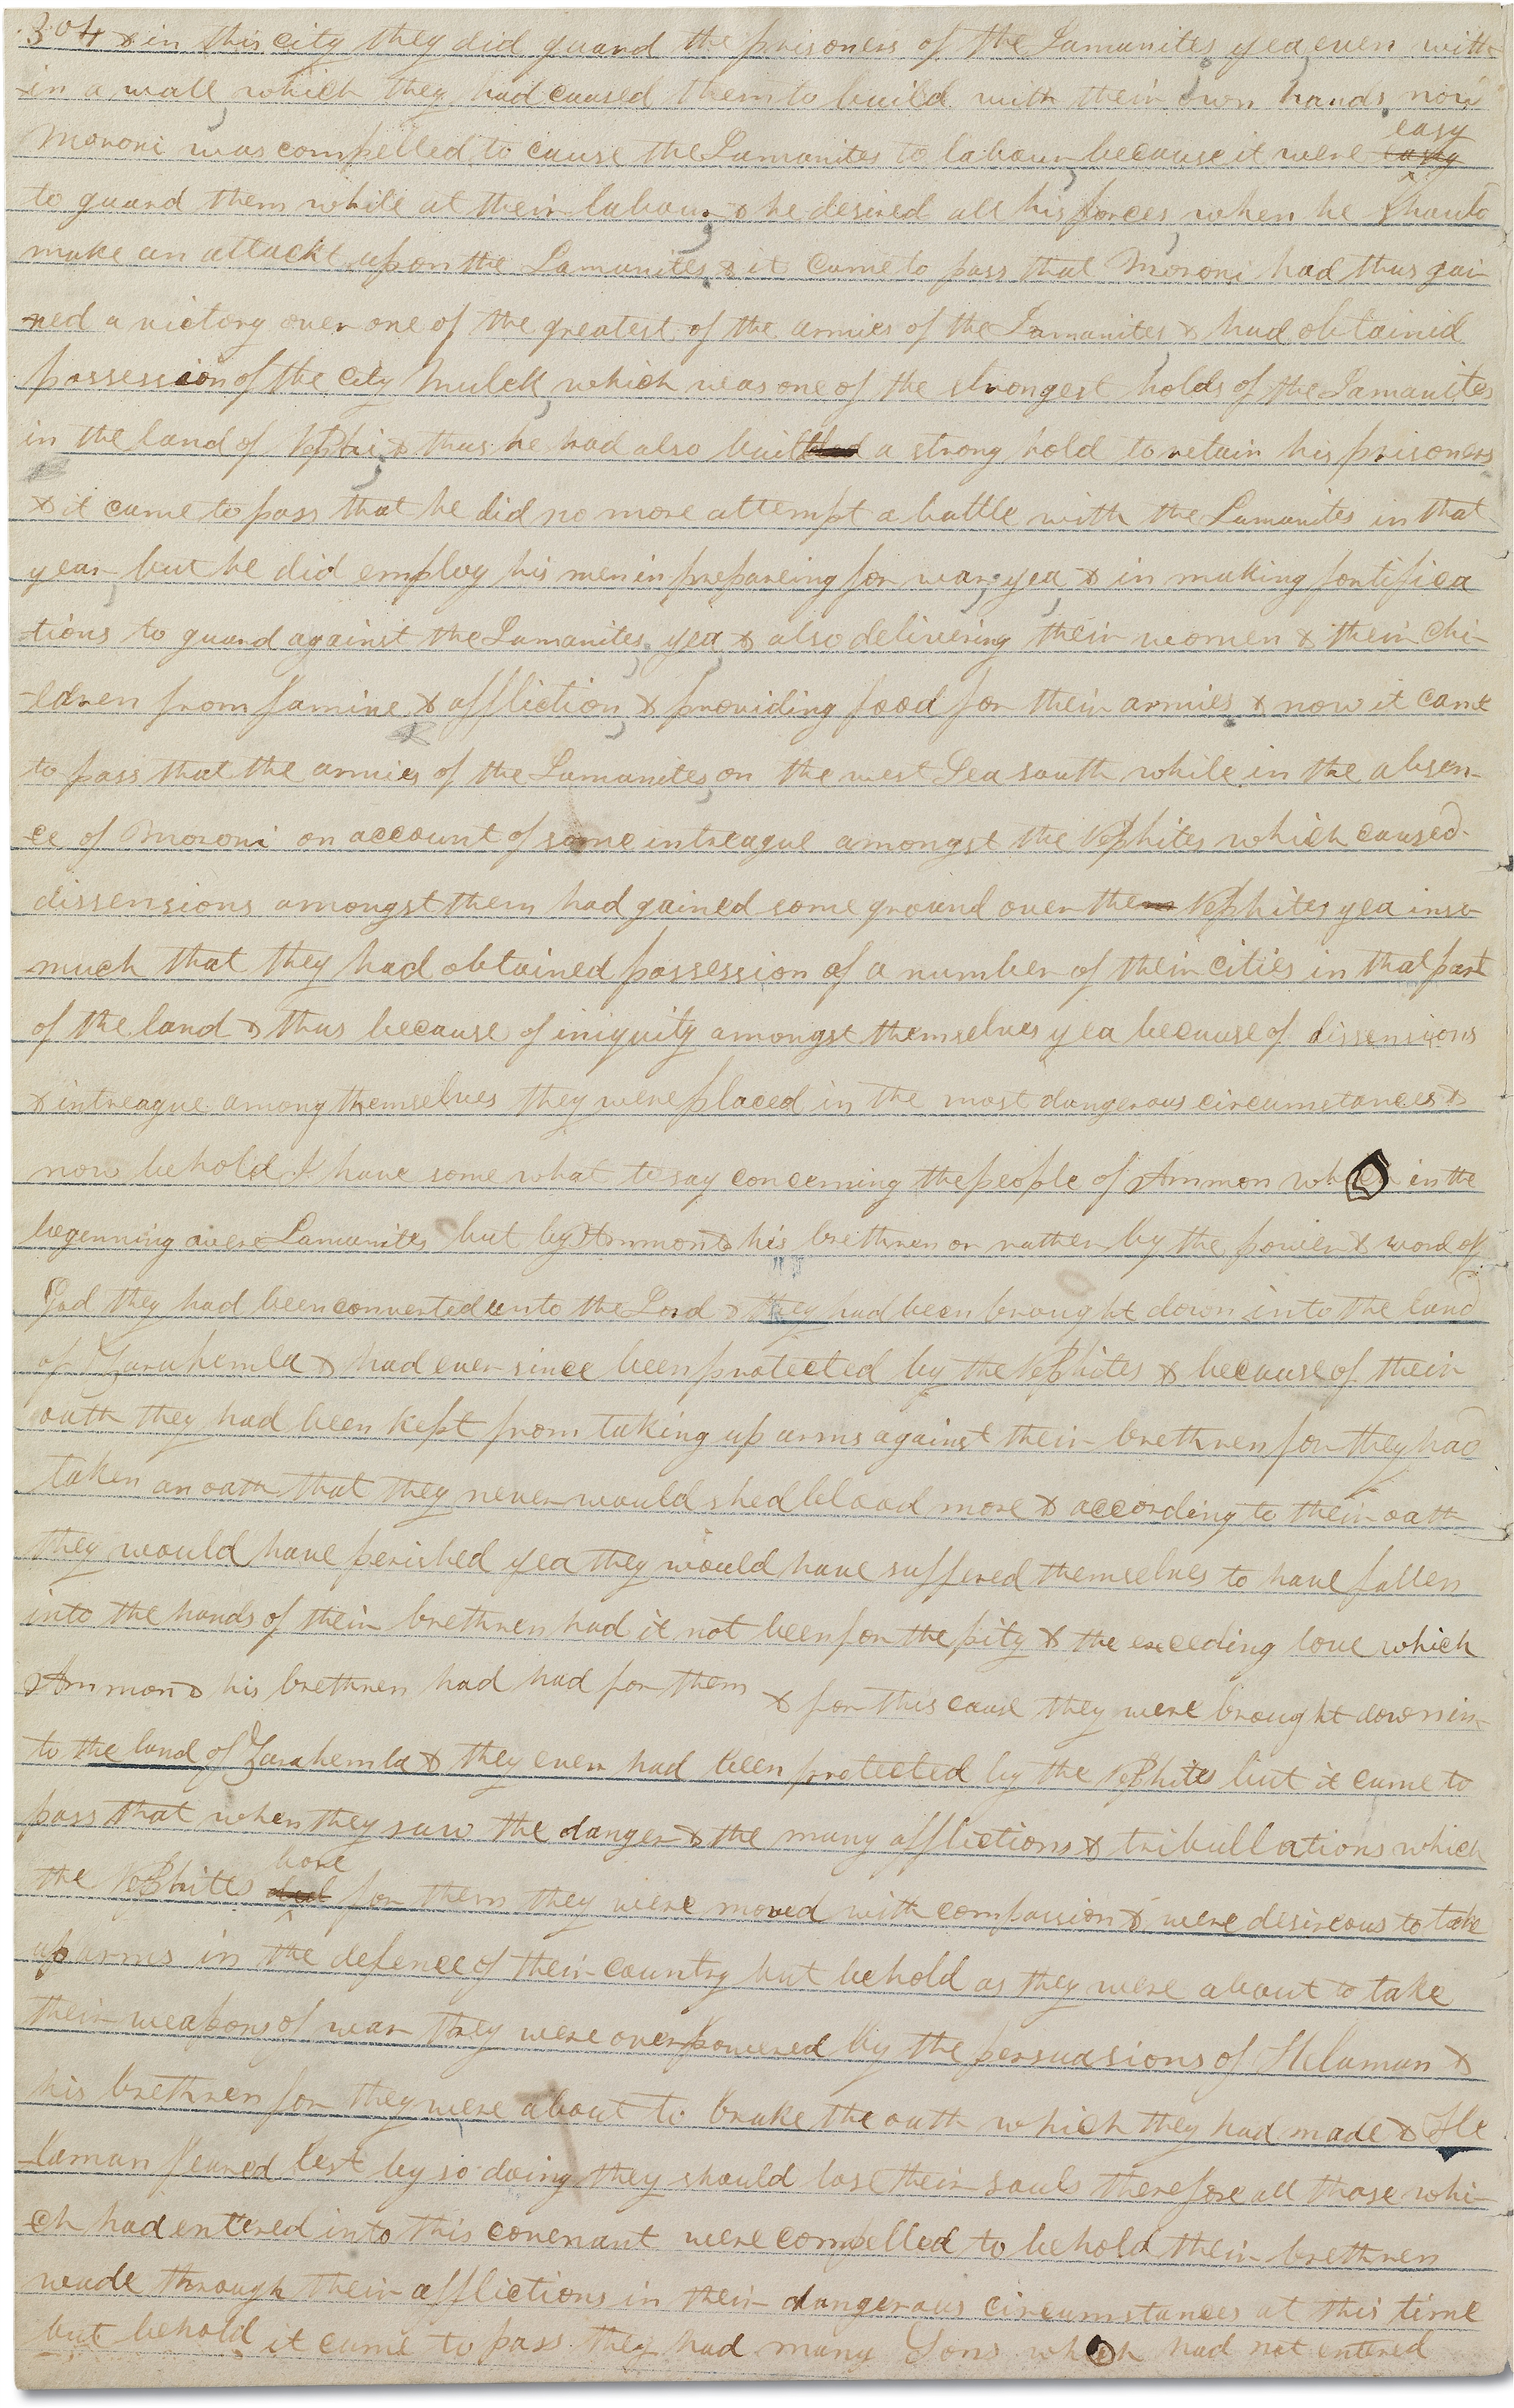 304 & in this city they did guard the prisoners of the Lamanites yea even with
-in a wall which they had caused them to build with their own hands now
Moroni was compelled to cause the Lamanites to labour because it were easy easy
to guard them while at their labour & he desired all his forces when he should
make an attackt upon the Lamanites & it came to pass that Moroni had thus gai-
-ned a victory over one of the greatest of the armies of the Lamanites & had obtainid
possession of the City Mulek which was one of the strongest holds of the Lamanites
in the land of Nephi & thus he had also built a strong hold to retain his prisoners
& it came to pass that he did no more attempt a battle with the Lamanites in that
year but he did employ his men in prepareing for war yea & in making fortifica
-tions to guard against the Lamanites yea & also delivering their women & their chi-
-ldren from famine & affliction & providing food for their armies & now it came
to pass that the armies of the Lamanites on the west Sea south while in the absen-
-ce of Moroni on account of some intreague amongst the Nephites which caused
dissensions amongst them had gained some ground over them Nephites yea inso-
much that they had obtained possession of a number of their cities in that part
of the land & thus because of iniquity amongst themselves yea because of dissensions
& intreague among themselves they were placed in the most dangerous circumstances &
now behold I have some what to say concerning the people of Ammon who in the
begenning were Lamanites but by Ammon & his brethren or rather by the power & word of
God they had been converted unto the Lord & they had been brought down into the land
of Zarahemla & had ever since been protected by the Nephites & because of their
oath they had been kept from taking up arms against their brethren for they had
taken an oath that they never would shed blood more & according to their oath
they would have perished yea they would have suffered themselves to have fallen
into the hands of their brethren had it not been for the pity & the exceeding love which
Ammon & his brethren had had for them & for this cause they were brought down in-
to the land of Zarahemla & they ever had been protected by the Nephites but it came to
pass that when they saw the danger & the many afflictions & tribullations which
the Nephites bore for them they were moved with compassion & were desireous to take
up arms in the defence of their country but behold as they were about to take
their weapons of war they were overpowered by the persuasions of Helaman &
his brethren for they were about to brake the oath which they had made & He
-laman feared lest by so doing they should lose their souls therefore all those whi-
-ch had entered into this covenant were compelled to behold their brethren
wade through their afflictions in their dangerous circumstances at this time
but behold it came to pass they had many Sons which had not entered